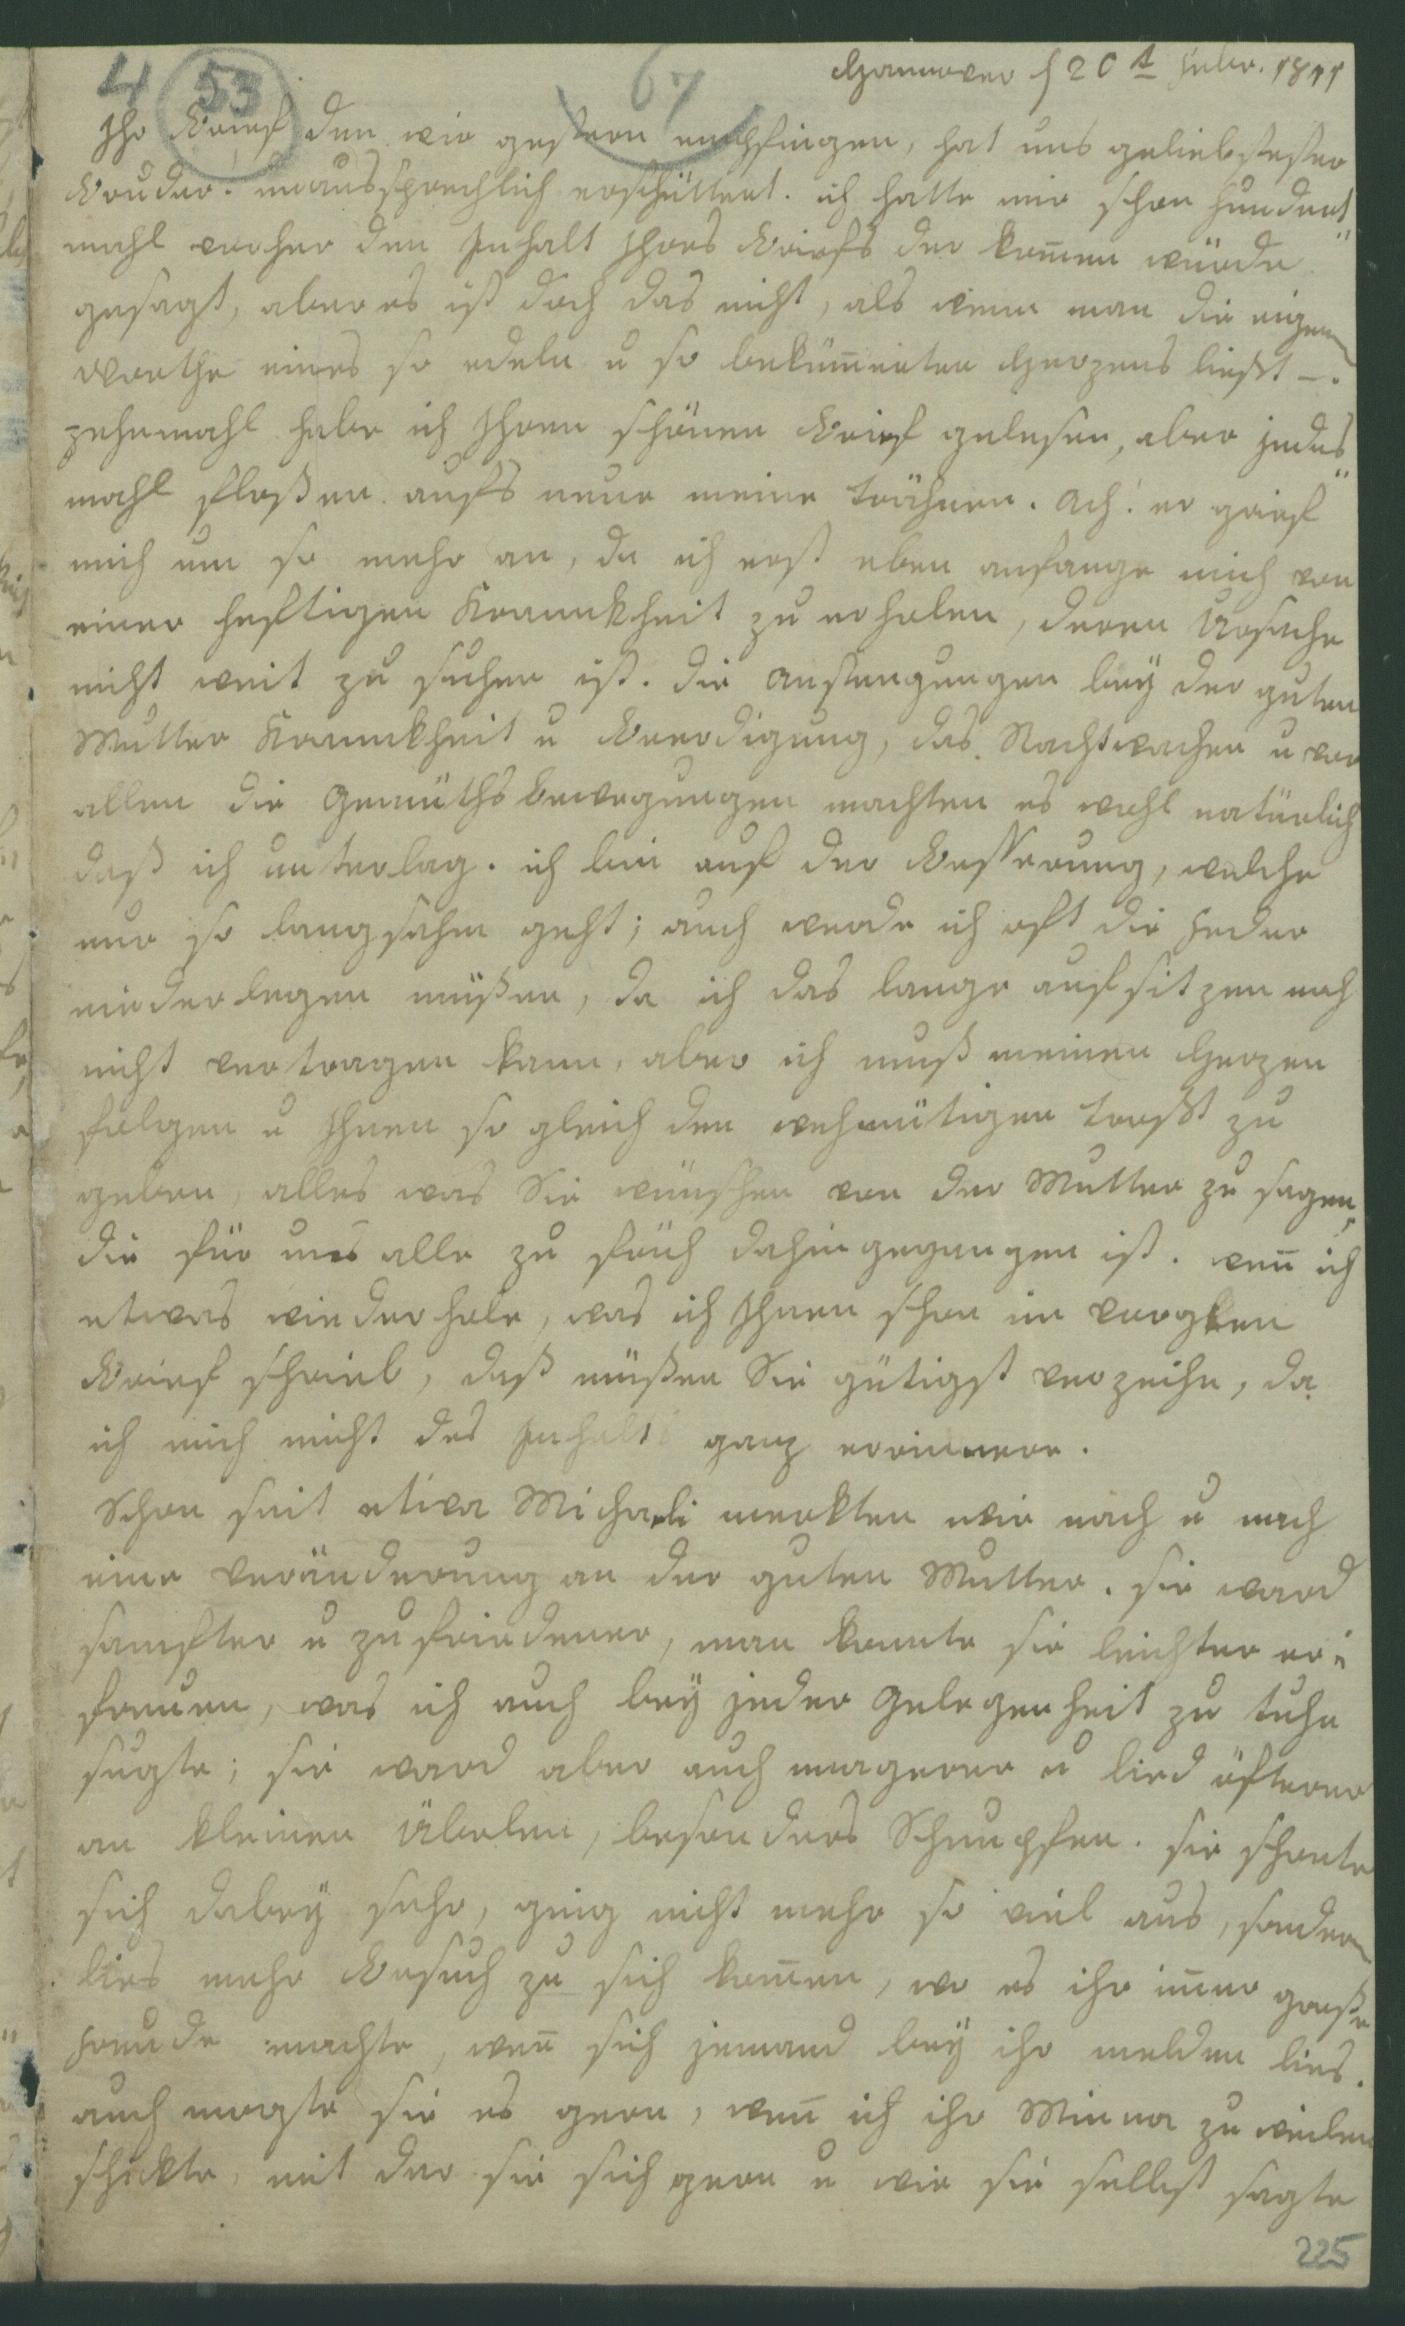 4 53 67
Hannover d 20t Febr. 1811
Ihr Brief den wir gestern empfingen, hat uns geliebtester
Bruder! unaussprechlich erschüttert. ich hatte mir schon hundert¨
mahl vorher den Inhalt Ihres Briefs der kom̅en würde
gesagt, aber es ist doch das nicht, als wenn man die eigen
Worthe eines so edeln u so beküm̅erten Herzens ließt –.
zehnmahl habe ich Ihren schönen Brief gelesen, aber jedes¨
mahl floßen aufs neue meine Trähnen. Ach! er grief
mich um so mehr an, da ich erst eben anfange mich von
einer heftigen Krannkheit zu erholen, deren Ursache
nicht weit zu suchen ist. die Anstengungen bey der guten
Mutter Krannkheit u Beerdigung, das Nachtwachen u vor
allen die Gemüthsbewegungen machten es wohl natürlich
daß ich unterlag. ich bin auf der Besserung, welche
nur so langsahm geht; auch werde ich oft die Feder
niederlegen müßen, da ich das lange aufsitzen noch
nicht vertragen kann, aber ich muß meinen Herzen
folgen u Ihnen so gleich den wehmütigen Trost zu
geben, alles was Sie wünschen von der Mutter zu sagen,
die für uns alle zu früh dahingegangen ist. wen̅ ich
etwas wiederhole, was ich Ihnen schon im vorgten
Brief schrieb, daß müßen Sie gütigst verzeihn, da
ich mich nicht des Inhalts ganz errinnere.
Schon seit etwa Michaeli merkten wir nach u nach
eine Veränderung an der guten Mutter. sie ward
sanfter u zufriedener, man konnte sie leichter er¨
freuen, was ich auch bey jeder Gelegenheit zu tuhn
sugte; sie ward aber auch magerer u lied öfterer
an kleinen Übelen, besonders Schnupfen. sie schonte
sich dabey sehr, ging nicht mehr so viel aus, sondern
lies mehr Besuch zu sich kom̅en, wo es ihr im̅er große
Freude machte, wen̅ sich jemand bey ihr melden lies.
auch mogte sie es gern, wen̅ ich ihr Minna zu weilen
schickte, mit der sie sich gern u wie sie selbst sagte
225